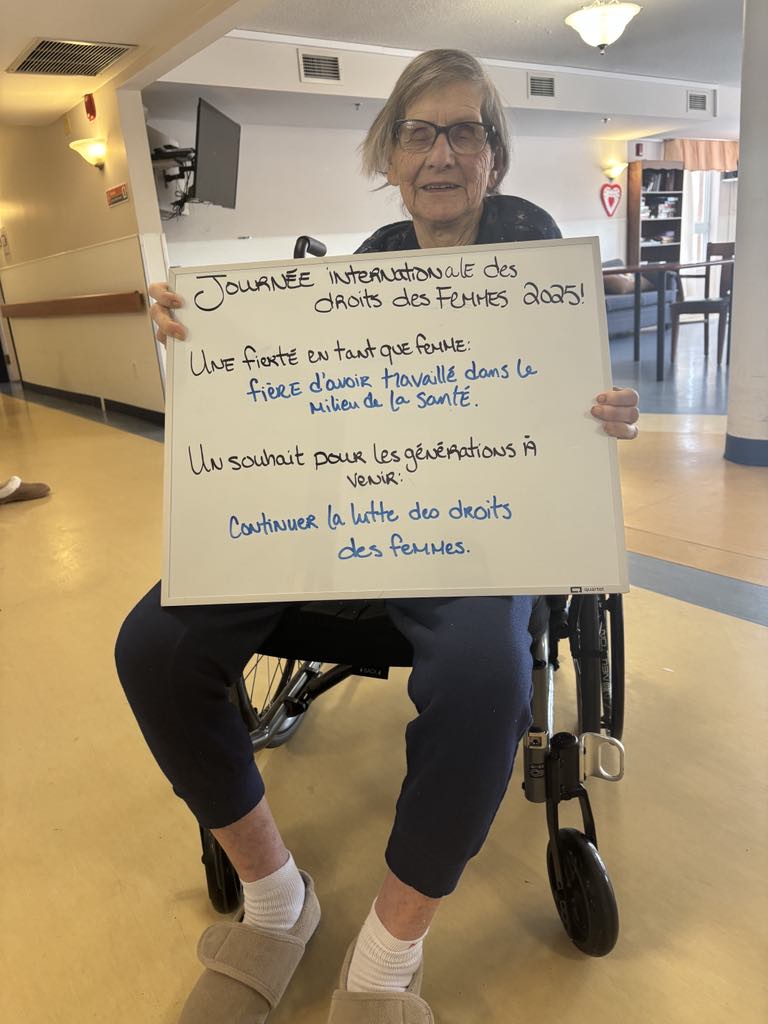 Journée internationale des
droits des femmes 2025!
Une fierté en tant que femme:
fière d'avoir travaillé dans le
milieu de la santé.
Un souhait pour les générations à
venir:
Continuer la lutte des droits
des femmes.
quartet